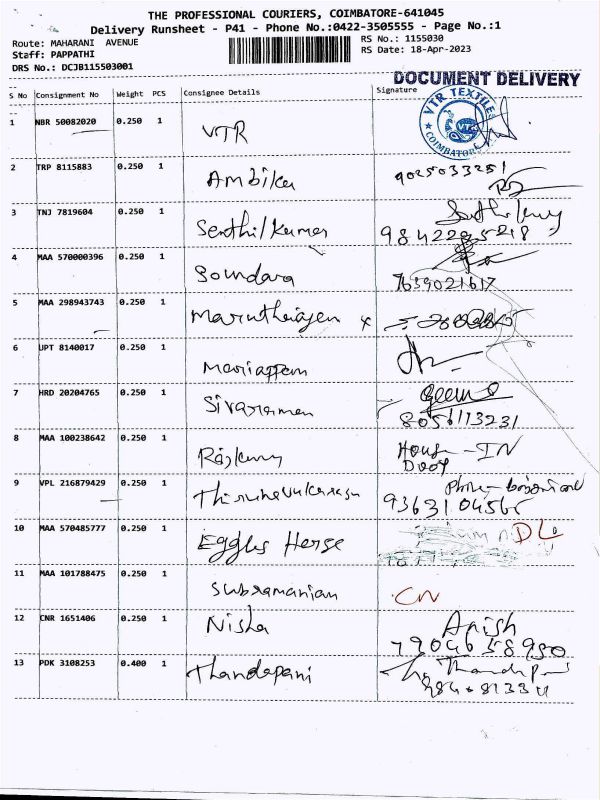 THE PROFESSIONAL COURIERS, COIMBATORE-641045
Delivery Runsheet - P41 - Phone No.:0422-3505555 - Page No.:1
Route: MAHARANI AVENUE
Staff: PAPPATHI
DRS No.: DCJB115503001
RS No.: 1155030
RS Date: 18-Apr-2023
DOCUMENT DELIVERY
S No Consignment No Weight PCS Consignee Details Signature
VTR TEXTILE
COIMBATORE
1 NBR 50082020 0.250 1 VTR
2 TRP 8115883 0.250 1 Ambika 9025033251
3 TNJ 7819604 0.250 1 Senthilkumar
9842285218
4 MAA 570000396 0.250 1 Soundara
7639021617
5 MAA 298943743 0.250 1 x
6 UPT 8140017 0.250 1 Mariappan
7 HRD 20204765 0.250 1 Sivaraman
8056113231
8 MAA 100238642 0.250 1 House - IN
Door
9 VPL 216879429 0.250 1
9363104565
10 MAA 570485777 0.250 1 DL
11 MAA 101788475 0.250 1 Subramanian CN
12 CNR 1651406 0.250 1 Nisha Anish
7904658950
13 PDK 3108253 0.400 1 Thandapani